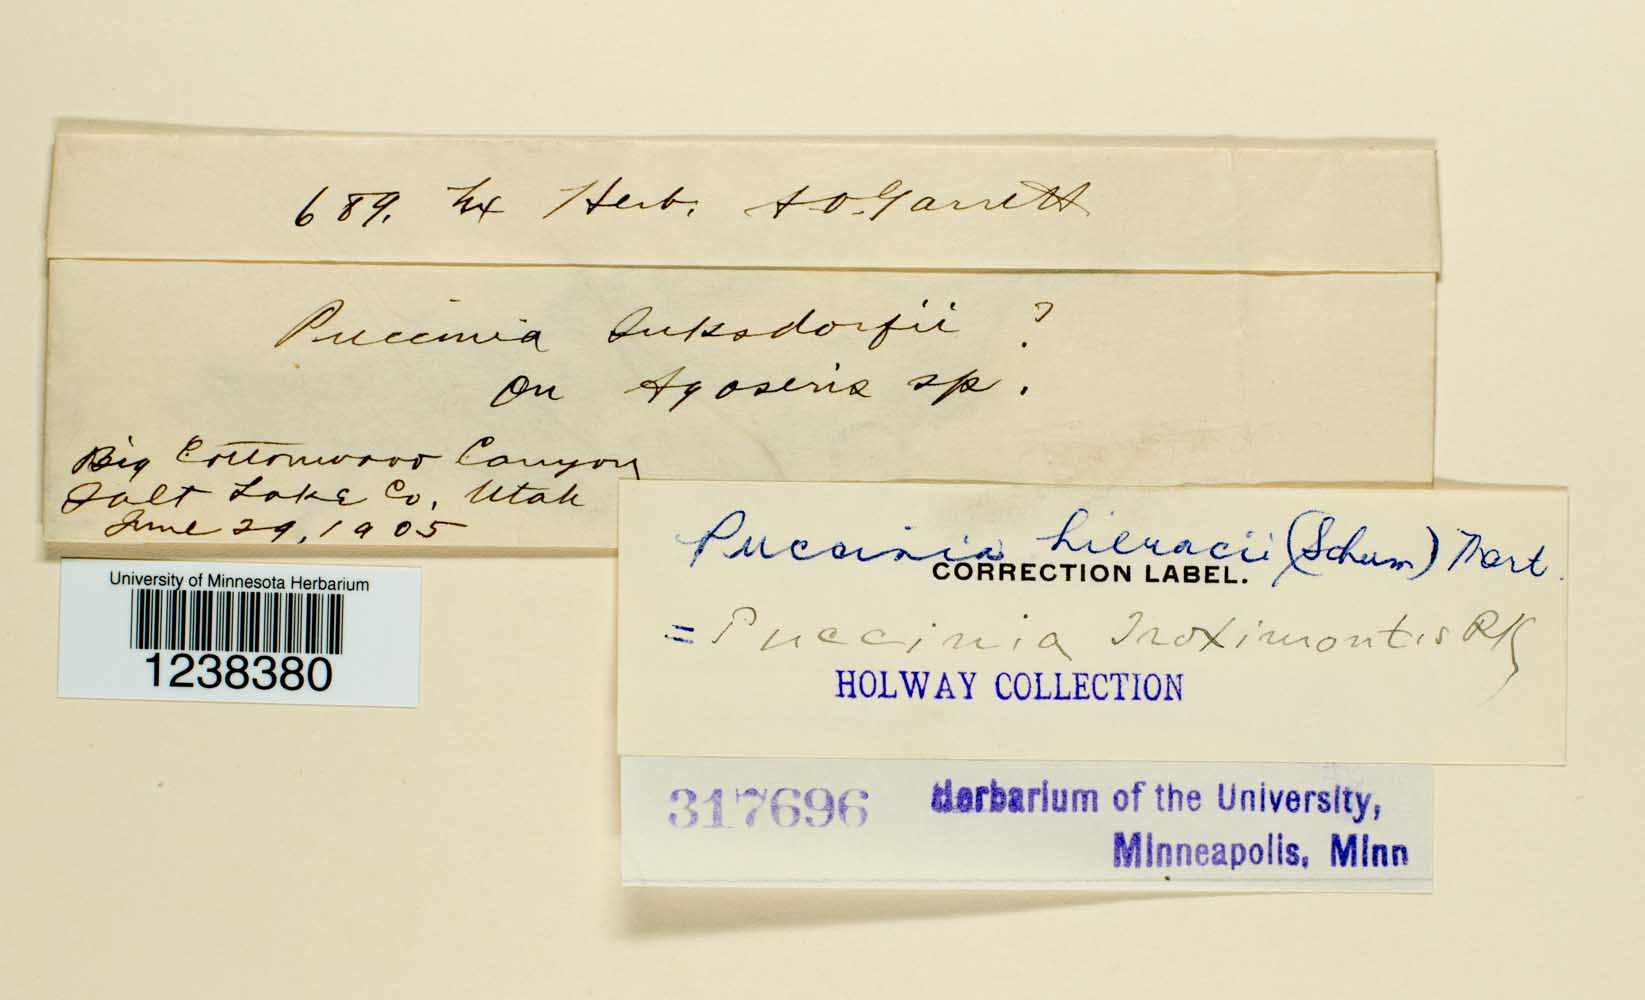 689. Ex Herb. A O. Garrett
Puccinia Suksdorfii ?
On Agoseris sp.
Big Cottonwood Canyon
Salt Lake Co, Utah
June 29, 1905
University of Minnesota Herbarium
1238380
Puccinia hieracii (Schum) Mart.
CORRECTION LABEL.
= Puccinia Troximontis Pk
HOLWAY COLLECTION
317696 Herbarium of the University,
Minneapolis, Minn